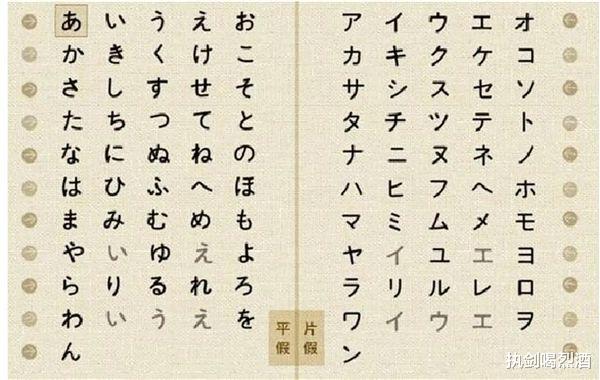 あ い う え お ア イ ウ エ オ
か き く け こ カ キ ク ケ コ
さ し す せ そ サ シ ス セ ソ
た ち つ て と タ チ ツ テ ト
な に ぬ ね の ナ ニ ヌ ネ ノ
は ひ ふ へ ほ ハ ヒ フ ヘ ホ
ま み む め も マ ミ ム メ モ
や い ゆ え よ ヤ イ ユ エ ヨ
ら り る れ ろ ラ リ ル レ ロ
わ い う え を ワ イ ウ エ ヲ
ん ン
平假
片假
执剑喝烈酒